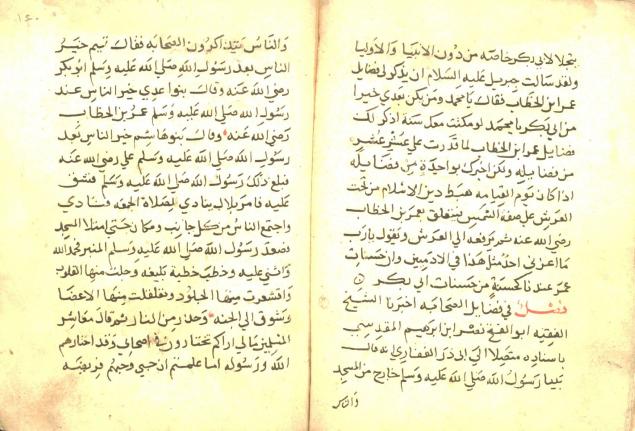 يتجلا لابي بكر خاصه من دون الانبيا والاوليا
ولقد سالت جبريل عليه السلام ان يذكر لي فضايل
عمر ابن الخطاب فقال يا محمد ومن يكن بعدي خيرا
من ابي بكر يا محمد لو مكثت معك سنة اذكر لك
فضايل عمر ابن الخطاب لما قدرت علي عشر عشير
من فضايله ولكن اخبرك بواحدة من فضايله
اذا كان يوم القيامه هبط دين الاسلام من تحت
العرش علي صفة الشمس يتعلق بعمر بن الخطاب
رضي الله عنه ثم يرفعه الي العرش ويقول يا رب
ما اعزني احد مثل هذا في الادميين وان حسنات
عمر عندنا كحسنة من حسنات ابي بكر
فصل في فضايل الصحابه اخبرنا الشيخ
الفقيه ابو الفتح نصر ابن ابرهيم المقدسي
باسناده متصلا الي ابي ذر الغفاري انه قال
بينا رسول الله صلي الله عليه وسلم خارج من المسجد
والناس
والناس يتذاكرون الصحابه فقالت تيم خير
الناس بعد رسول الله صلي الله عليه وسلم ابو بكر
رضي الله عنه وقالت بنوا عدي خير الناس عند
رسول الله صلي الله عليه وسلم عمر بن الخطاب
رضي الله عنه وقالت بنوا هاشم خير الناس بعد
رسول الله صلي الله عليه وسلم علي رضي الله عنه
فبلغ ذلك رسول الله صلي الله عليه وسلم فشق
عليه فامر بلال ينادي الصلاة الجامعه فنادي
واجتمع الناس من كل جانب ومكان حتي امتلا المسجد
فصعد رسول الله صلي الله عليه وسلم المنبر فحمد الله
واثني عليه وخطب خطبة بليغه وجلت منها القلوب
واقشعرت منها الجلود وتقلقلت منها الاعضا
وشوق الي الجنه وحذر من النار ثم قال معاشر
المسلمين مالي اراكم تختارون في اصحابي وقد اختارهم
الله ورسوله اما علمتم ان حبي وحبهم فريضه